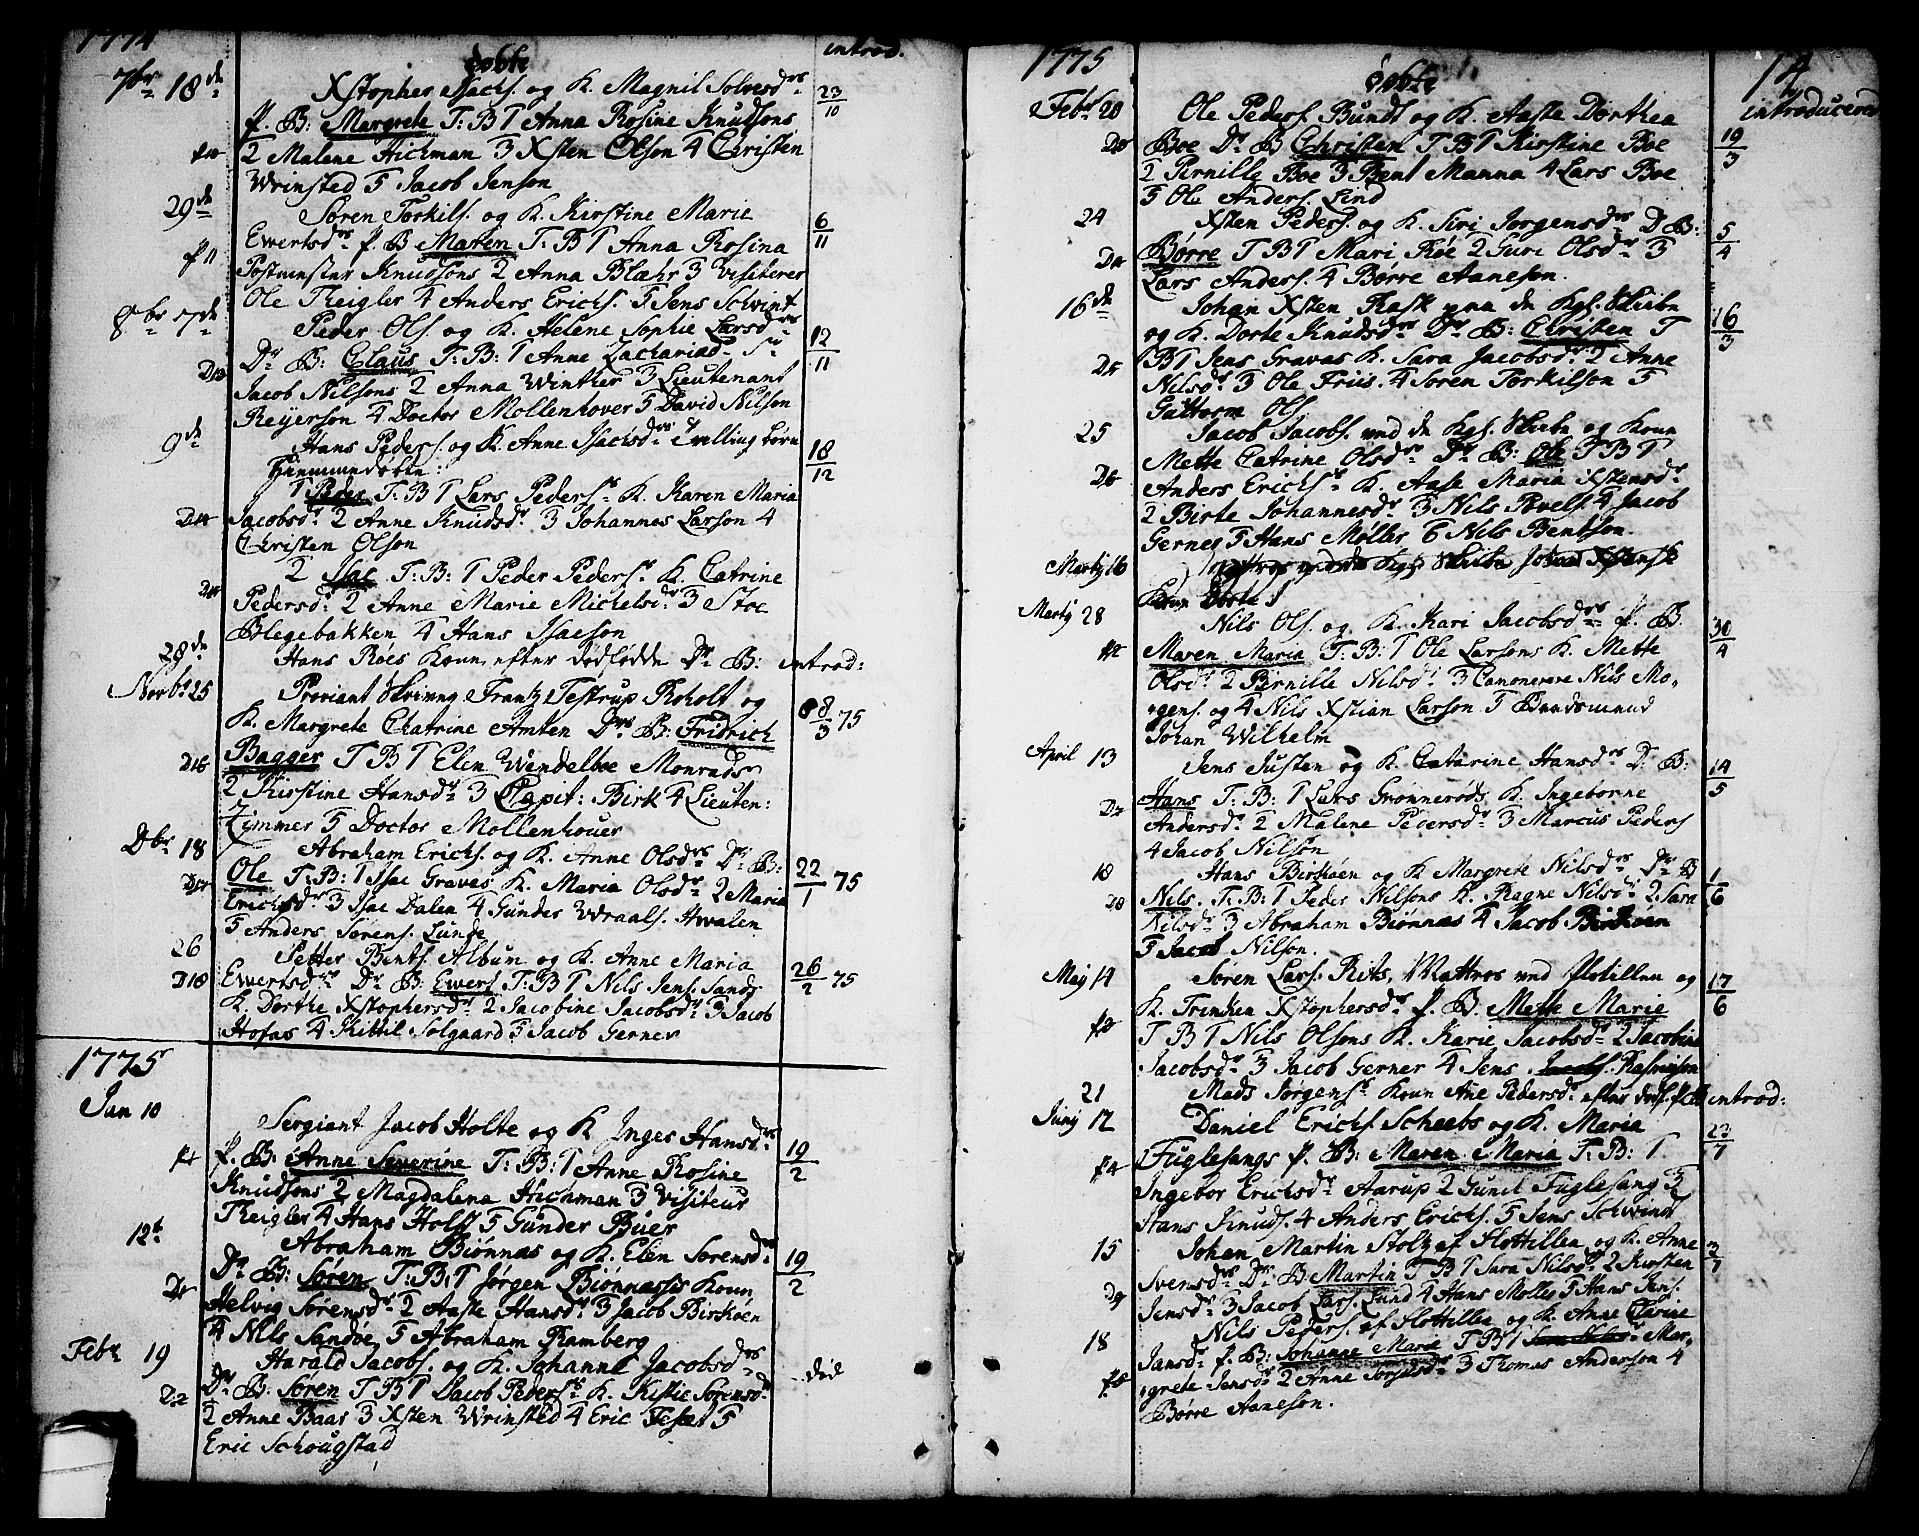 1774
døbte
introd.
7br 18de
Xstopher Isachs. og K. Magnil Solvesdr
23/10
P. B: Margrete T: B 1 Anna Rosine Knudsons
2 Malene Hichman 3 Xsten Olson 4 Christen
Wrinsted 5 Jacob Jenson
29de
Søren Torkils. og K. Kirstine Marie
6/11
Ewertsdr P. B Maren T: B 1 Anna Rosina
Postmester Knudsons 2 Anna Blæhr 3 Visiteres
Ole Theigler 4 Anders Erichs. 5 Jens Schwint
8br 7de
Peder Ols. og K. Helene Sophie Larsdr
12/11
Dr B: Claus T: B: 1 Anne Zachariad
Jacob Nilsons 2 Anna Winther 3 Lieutenant
Reyerson 4 Doctor Mollenhover 5 David Nilson
9de
Hans Peders. og K. Anne Isachsdr Tvilling børn
18/12
hiemmedøbte:
1 Peder T: B 1 Lars Peders. K. Karen Maria
Jacobsdr 2 Anne Knudsdr 3 Johannes Larson 4
Christen Olson
2 Isac T: B: 1 Peder Peders. K. Catrine
Pedersdr 2 Anne Marie Michelsdr 3 Stoe
Blegebakken 4 Hans Isacson
28de
Hans Røes Konne efter dødfødde Dr B: introd:
Novbr 25
Proviant Skriver Frantz Testrup Roholt og
8/3 75
K. Margrete Chatrine Amten Dr B: Fridrich
Bagger T B 1 Elen Wendelboe Monrads
2 Kirstine Hansdr 3 Capit: Birk 4 Lieuten:
Zimmer 5 Doctor Mollenhouer
Dbr 18
Abraham Erichs. og K. Anne Olsdr Dr B:
22/1 75
Ole T: B: 1 Isac Graves K. Maria Olsdr 2 Maria
Erichsdr 3 Isac Dalen 4 Gunder Wraals. Hwalen
5 Anders Sørens. Lunde
26
Petter Bents. Album og K. Anne Maria
26/2 75
Ewertsdr Dr B: Ewert T: B 1 Nils Jens. Sands
K. Dorthe Xstophersdr 2 Jacobine Jacobsdr 3 Jacob
Hofas 4 Kittil Solgaard 5 Jacob Gerner
1775
Jan 10
Sergiant Jacob Holte og K Inger Hansdr
19/2
P. B: Anne Severine T: B: 1 Anne Rosine
Knudsons 2 Magdalena Hichman 3 Visiteur
Theigler 4 Hans Holst 5 Gunder Buer
12t
Abraham Biønnas og K. Elen Sørensdr
19/2
Dr B: Søren T: B: 1 Jørgen Biønnases Konn
Helvig Sørensdr 2 Aaste Hansdr 3 Jacob Birkøen
4 Nils Sandøe 5 Abraham Ramberg
Febr 19
Harald Jacobs. og K. Johanne Jacobsdr
død
Dr B: Søren T B 1 Jacob Peders. K. Kistie Sørensdr
2 Anne Baas 3 Xsten Wrinsted 4 Eric Tesæt 5
Eric Schougstad
1775
døbte
14
introducered
Febr 20
Ole Peders. Bundt og K. Aaste Dorthea
19/3
Boe Dr B Christen T B 1 Kirstine Boe
2 Pernille Boe 3 Bent Manna 4 Lars Boe
5 Ole Anders. Lind
24
Xsten Peders. og K. Siri Jorgensdr D B:
5/4
Børre T B 1 Mari Røe 2 Guri Olsdr 3
Lars Anders. 4 Børre Aaneson.
16de
Johan Xsten Rask paa de Kgl. Skibe
16/3
og K. Dorte Knudsdr Dr B: Christen T
B 1 Jens Gravas K. Sara Jacobsdr 2 Anne
Nilsdr 3 Ole Friis. 4 Søren Torkilson 5
Guttorm Ols.
25
Jacob Jacobs. ved de Kgl. Skibe og Konn
Mette Catrine Olsdr Dr B: Ole T B 1
Anders Erichs. K. Aase Maria Xstensdr
2 Birte Johannesdr 3 Nils Povels. 4 Jacob
Gerner 5 Hans Møller 6 Nils Bentson.
Martj 16
Martj 28
Nils Ols. og K. Kari Jacobsdr P. B.
30/4
Maren Maria T: B: 1 Ole Larsons K. Mette
Olsdr 2 Birnille Nilsdr 3 Canonerere Nils Mo,,
,,gens. og 4 Nils Xstian Larson 5 Baadsmand
Johan Wilhelm
April 13
Jens Justen og K. Catarine Hansdr D: B:
14/5
Hans T: B: 1 Lars Grønnerøds K. Ingeborne
Andersdr 2 Malene Pedersdr 3 Marcus Peders
4 Jacob Nilson
18
Hans Birkøen og K. Margrete Nilsdr Dr B
1/6
Nils. T: B: 1 Peder Nilsons K. Ragne Nilsdr 2 Sara
Nilsdr 3 Abraham Biønnas 4 Jacob Birkøen
5 Jacob Nilson.
Maj 14
Søren Lars. Rits, Mattros ved flotillen og
17/6
K. Trinken Xstophersdr P. B. Mette Marie
T B 1 Nils Olsons K. Karie Jacobsdr 2 Jacobine
Jacobsdr 3 Jacob Gerner 4 Jens Rasmuson
21
Mads Jørgens. Konn Ane Pedersdr efter introd:
Junj 12
Daniel Erichs. Scheebs og K. Maria
23/7
Fuglesangs P. B: Maren Maria T: B: 1
Ingebor Erichsdr Aarup 2 Gunil Fuglesang 3
Hans Knuds. 4 Anders Erichs. 5 Jens Schwindt
15
Johan Martin Stoltz af Flottillen og K. Anne
Svensdr Dr B: Martin T B 1 Sara Nilsdr 2 Kirsten
Jensdr 3 Jacob Lars. Lund 4 Hans Moller 5 Hans Jens.
18
Nils Peders. af Flottillen og K. Anne Chirine
Jansdr P. B: Johanne Marie T B 1 Mar,,
,,grete Jensdr 2 Anne Sørensdr 3 Thomas Anderson 4
Børre Aaneson.